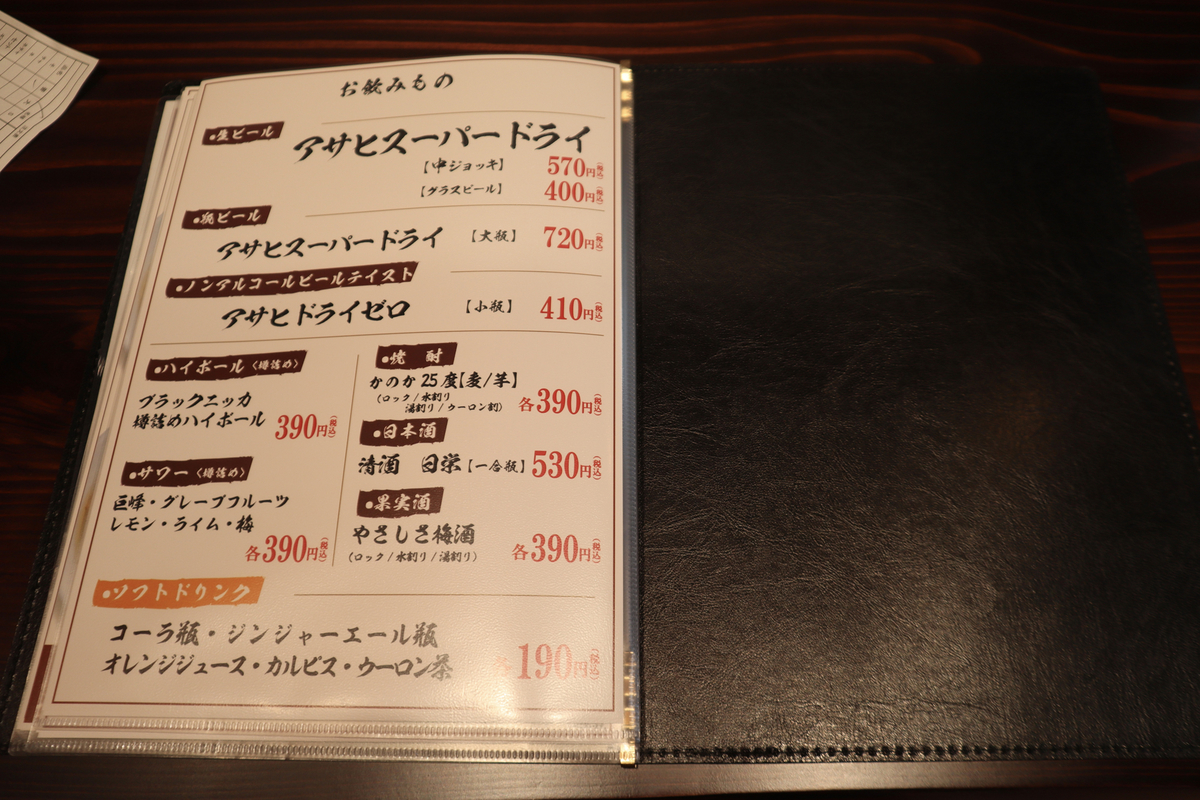 お飲みもの
●生ビール
アサヒスーパードライ
【中ジョッキ】 570円(税込)
【グラスビール】 400円(税込)
●瓶ビール
アサヒスーパードライ 【大瓶】 720円(税込)
●ノンアルコールビールテイスト
アサヒドライゼロ 【小瓶】 410円(税込)
●ハイボール〈樽詰め〉
ブラックニッカ
樽詰めハイボール 390円(税込)
●サワー〈樽詰め〉
巨峰・グレープフルーツ
レモン・ライム・梅
各390円(税込)
●焼酎
かのか25度【麦/芋】
(ロック/水割り
湯割り/ウーロン割) 各390円(税込)
●日本酒
清酒 日栄【一合瓶】530円(税込)
●果実酒
やさしさ梅酒
(ロック/水割り/湯割り) 各390円(税込)
●ソフトドリンク
コーラ瓶・ジンジャーエール瓶
オレンジジュース・カルピス・ウーロン茶 各190円(税込)